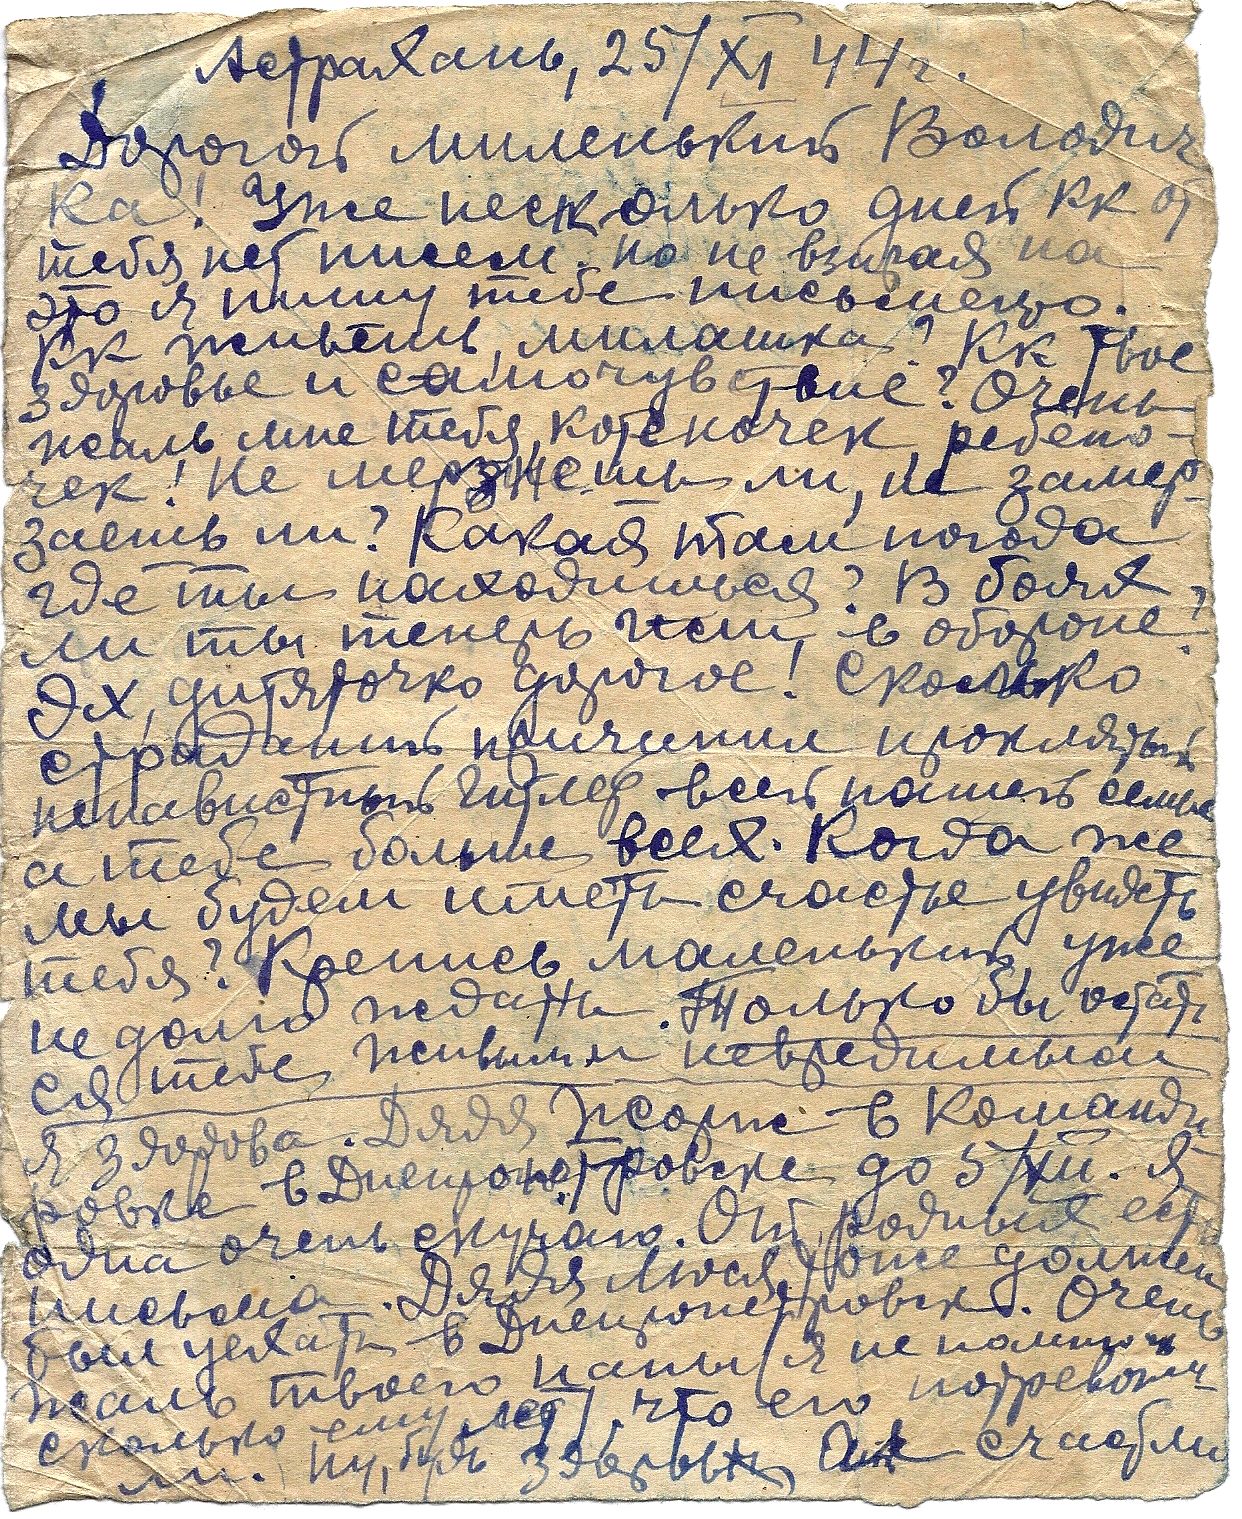 Астрахань, 25/XI 44 г.
Дорогой миленький Володич
ка! Уже несколько дней кк от
тебя нет писем. но не взирая на
это я пишу тебе письмецо.
Кк живешь, милашка? Кк твое
здоровье и самочувствие? Очень
жаль мне тебя, котеночек ребено-
чек! Не мерзнешь ли, не замер-
заешь ли? Какая там погода
где ты находишься? В боях
ли ты теперь или, в обороне?
Эх, дитяточко дорогое! Сколько
страданий причинил проклятый
ненавистный Гитлер всей нашей семье
а тебе больше всех. Когда же
мы будем иметь счастье увидеть
тебя? Крепись, маленький, уже
не долго ждать. Только бы остать
ся тебе живым и невредимым
Я здорова. Дядя Жорж в команди
ровке в Днепропетровске до 5/XII. Я
одна очень скучаю. От родных есть
письма. Дядя Люся тоже должен
был уехать в Днепропетровск. Очень
жаль твоего папы (я не помню
сколько ему лет), что его потревожи-
ли. Ну, будь здоров, счастли